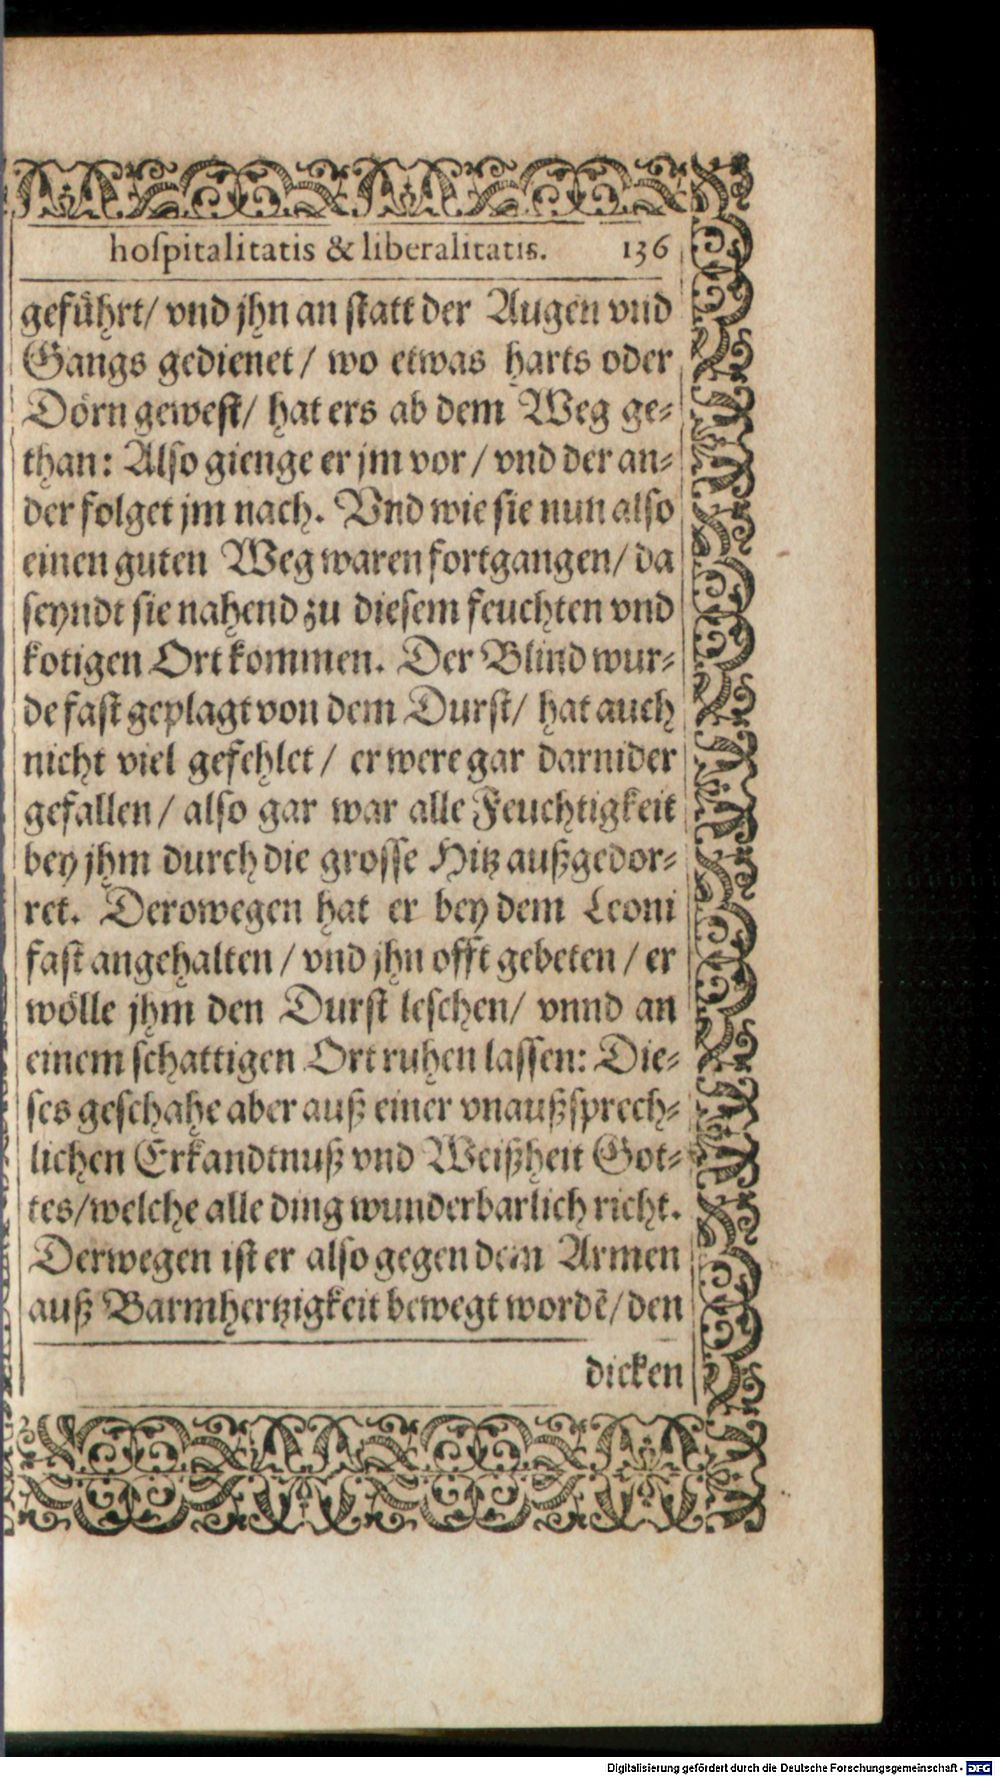 hoſpitalitatis & liberalitatis. 136
geführt/ vnd jhn an ſtatt der Augen vnd
Gangs gedienet / wo etwas harts oder
Dörn geweſt/ hat ers ab dem Weg ge⸗
than: Alſo gienge er jm vor / vnd der an⸗
der folget jm nach. Vnd wie ſie nun alſo
einen guten Weg waren fortgangen/ da
ſeyndt ſie nahend zu dieſem feuchten vnd
kotigen Ort kommen. Der Blind wur⸗
de faſt geplagt von dem Durſt/ hat auch
nicht viel gefehlet / er were gar darnider
gefallen / alſo gar war alle Feuchtigkeit
bey jhm durch die groſſe Hitz außgedor⸗
ret. Derowegen hat er bey dem Leoni
faſt angehalten / vnd jhn offt gebeten / er
wölle jhm den Durſt leſchen/ vnnd an
einem ſchattigen Ort ruhen laſſen: Die⸗
ſes geſchahe aber auß einer vnaußſprech⸗
lichen Erkandtnuß vnd Weißheit Got⸗
tes/welche alle ding wunderbarlich richt.
Derwegen iſt er alſo gegen dem Armen
auß Barmhertzigkeit bewegt wordẽ/ den
dicken
Digitalisierung gefördert durch die Deutsche Forschungsgemeinschaft - DFG